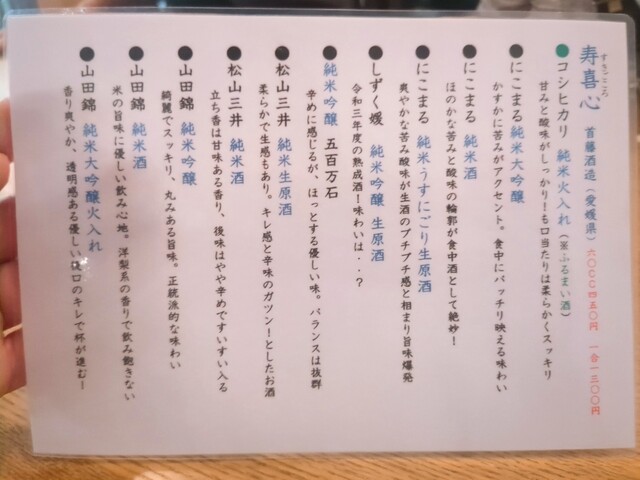 すきごころ
寿喜心 首藤酒造（愛媛県）六〇CC四五〇円 一合一三〇〇円
●コシヒカリ 純米火入れ（※ふるまい酒）
甘みと酸味がしっかり！も口当たりは柔らかくスッキリ
●にこまる 純米大吟醸
かすかに苦みがアクセント。食中にバッチリ映える味わい
●にこまる 純米酒
ほのかな苦みと酸味の輪郭が食中酒として絶妙！
●にこまる 純米うすにごり生原酒
爽やかな苦み酸味が生酒のプチプチ感と相まり旨味爆発
●しずく媛 純米吟醸 生原酒
令和三年度の熟成酒！味わいは・・？
●純米吟醸 五百万石
辛めに感じるが、ほっとする優しい味。バランスは抜群
●松山三井 純米生原酒
柔らかで生感もあり。キレ感と辛味のガツン！としたお酒
●松山三井 純米酒
立ち香は甘味ある香り、後味はやや辛めですいすい入る
●山田錦 純米吟醸
綺麗でスッキリ、丸みある旨味。正統派的な味わい
●山田錦 純米酒
米の旨味に優しい飲み心地。洋梨系の香りで飲み飽きない
●山田錦 純米大吟醸火入れ
香り爽やか、透明感ある優しい辛口のキレで杯が進む！